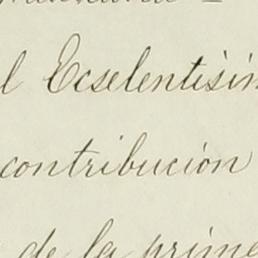 l Ecselentísim
contribución
de la prime